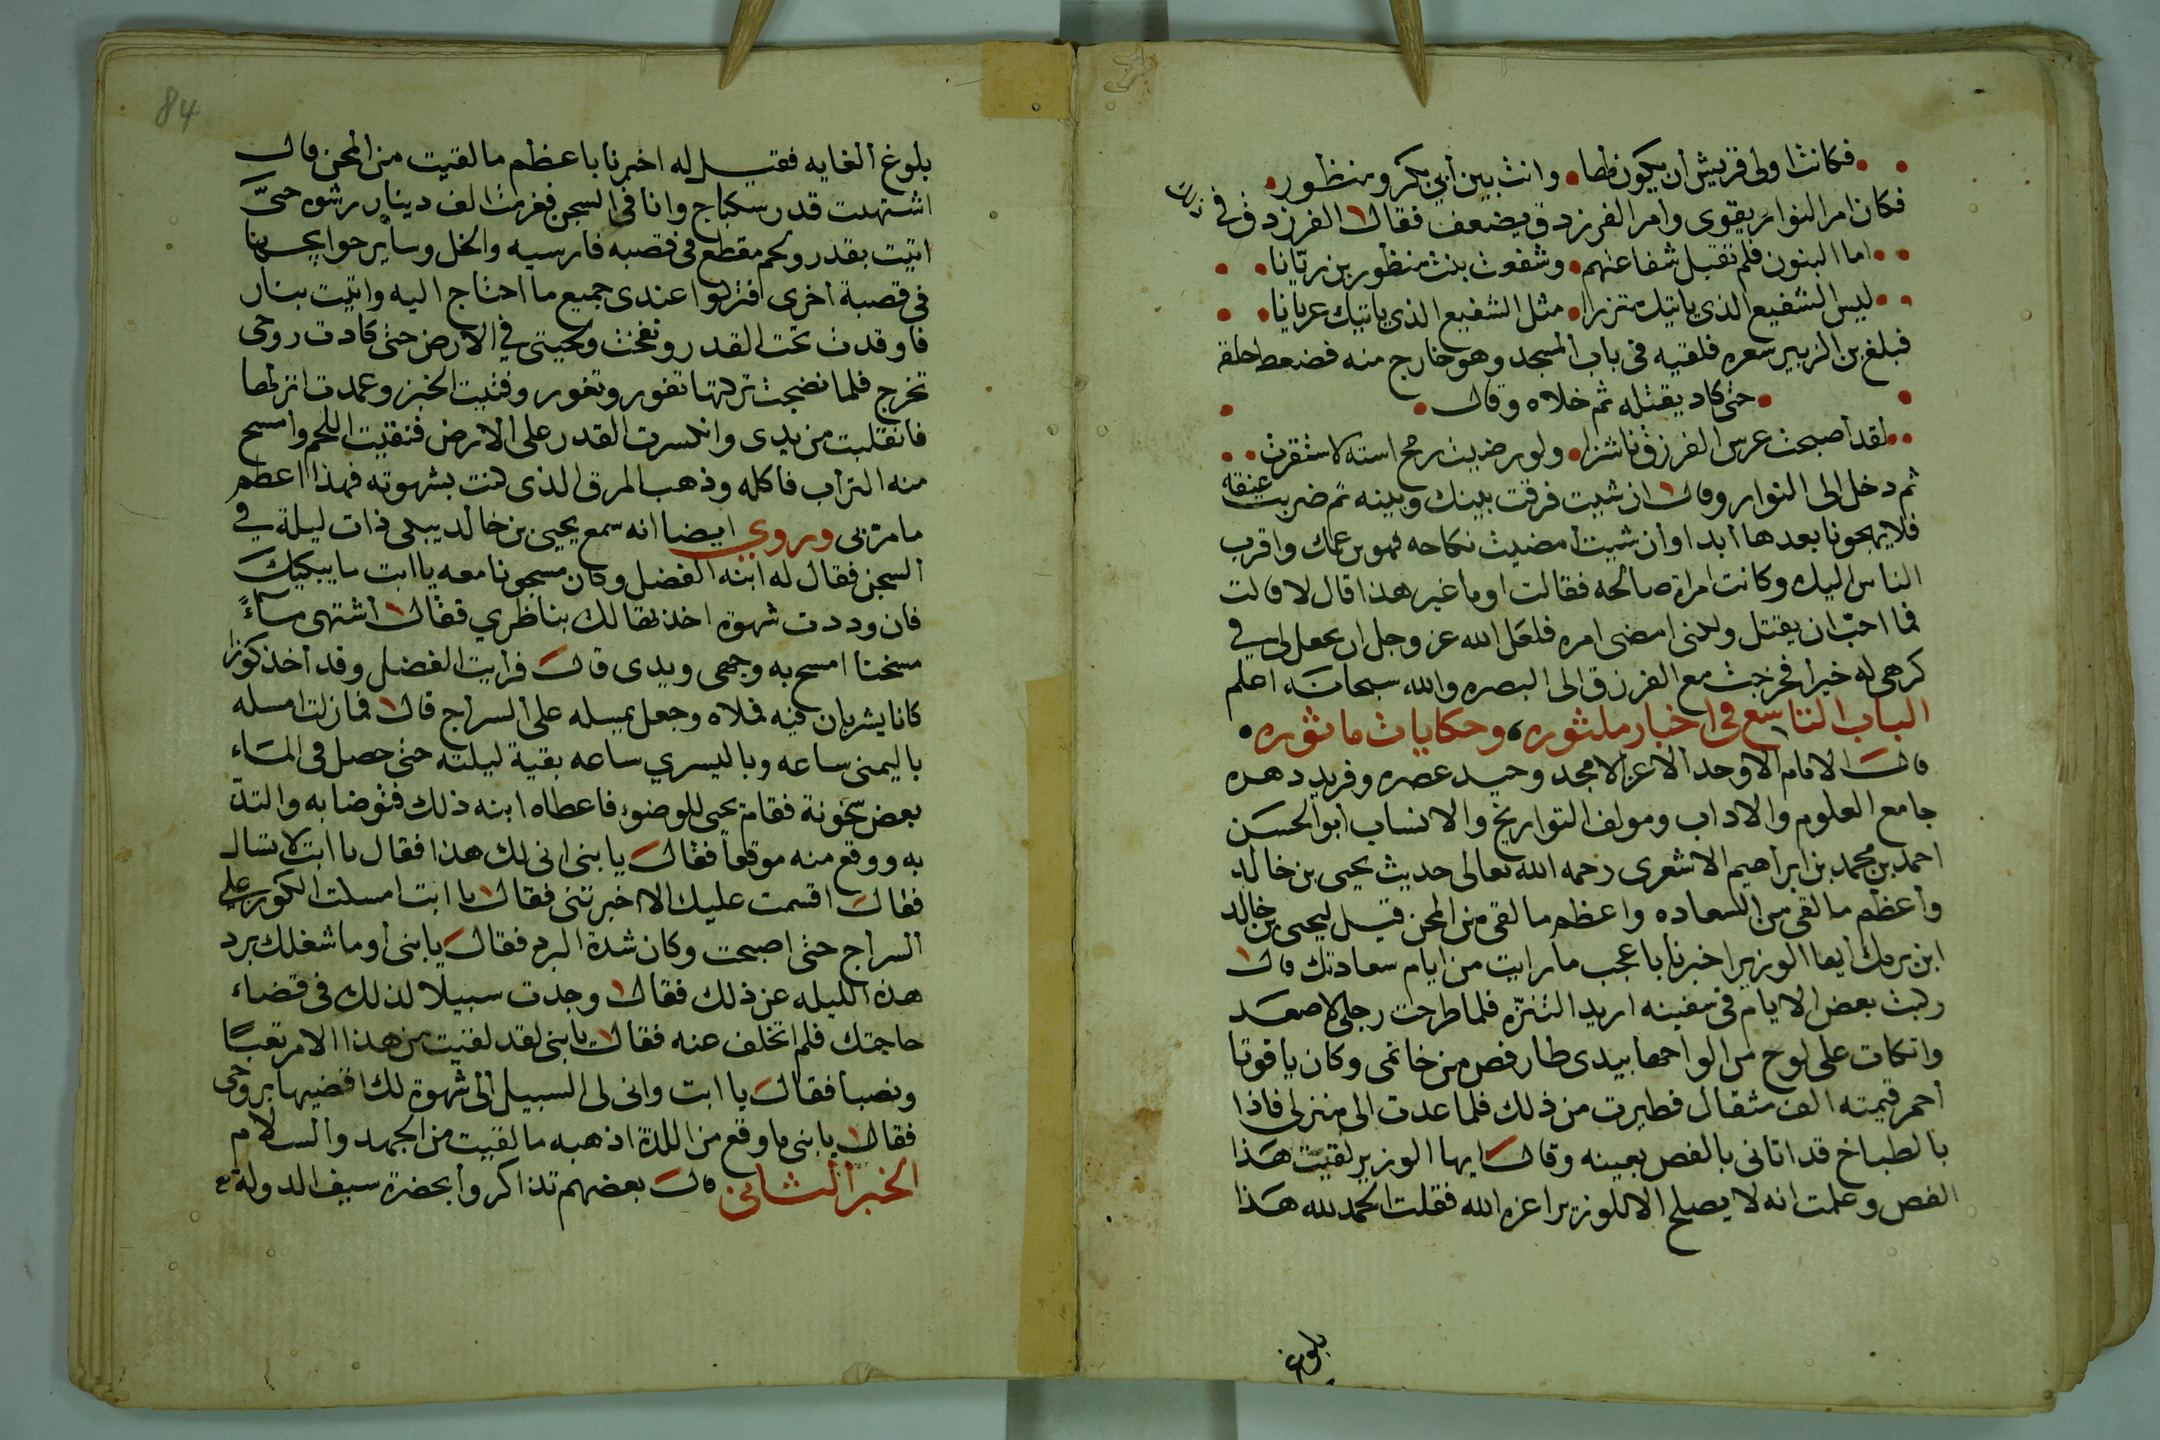 فكانث اولى قريش أن يكون لها وانث بين أبي بكر ومنظور
فكان امر النوار يقوى وأمر الفرزدق يضعف فقال الفرزدق في
اما البنون فلم تقبل شفاعتهم وشفعت بنث منظور بن زبّانا
ليس الشفيع الذي ياتيك متزرا مثل الشفيع الذي ياتيك عريانا
فبلغ بن الزبير شعره فلقيه في باب المسجد وهو خارج منه فضغط حلقه
حتى كاد يقتله ثم خلاه وقال
لقد أصبحت عرس الفرزدق ناشزا ولو رضيت رمح استه لاستقرت
ثم دخل الى النوار وقال ان شيت فرقت بينك وبينه ثم ضربت عنقه
فلا يهجونا بعدها أبدا وأن شيت أمضيت نكاحه فهو بن عمك واقرب
الناس اليك وكانت امراة صالحه فقالت اوما غير هذا قال لا قالت
فما احبّ ان يقتل ولكنى امضى امره فلعل الله عز وجل ان يجعل لى في
كرهي له خيرا فخرجت مع الفرزدق الى البصره والله سبحانه اعلم
الباب التاسع في اخبار ملثوره وحكايات ماثوره
قال الامام الاوحد الاعز الامجد وحيد عصره وفريد دهره
جامع العلوم والاداب ومولف التواريخ والانساب أبو الحسن
احمد بن محمد بن ابراهيم الاشعرى رحمه الله تعالى حديث يحيى بن خالد
وأعظم ما لقى من السعاده واعظم ما لقى من المحن قيل ليحيى بن خالد
ابن برمك أيها الوزير اخبرنا باعجب ما رايت من أيام سعادتك قال
ركبت بعض الايام في سفينه اريد التنزّه فلما طرحت رجلى لاصعد
واتكات على لوح من الواحها بيدى طار فص من خاتمى وكان ياقوتا
أحمر قيمته الف مثقال فطيرت من ذلك فلما عدت الى منزلى فاذا
بالطباخ قد اتانى بالفص بعينه وقال ايها الوزير لقيت هذا
الفص وعلمت انه لا يصلح الا للوزير اعزه الله فقلت الحمد لله هذا
بلوغ
84
بلوغ الغايه فقيل له اخبرنا باعظم ما لقيت من المحن قال
اشتهيت قدر سكباج وانا في السجن فغرمت الف دينار رشوه حتّى
اتيت بقدر ولحم مقطع في قصبه فارسيه والخل وساير حوايجها
في قصبة أخرى افتركوا عندى جميع ما احتاج اليه واتيت بنار
فاوقدت تحت القدر ونفخت ولحيتى في الارض حتى كادت روحى
تخرج فلما نضجت تركتها تفور وتغور وفتيت الخبز وعمدت انزلها
فانقلبت من يدى وانكسرت القدر على الارض فنقيت اللحم وأمسح
منه التراب فاكله وذهب المرق الذى كنت بشهوته فهذا اعظم
ما مرّ بى وروي ايضا انه سمع يحيى بن خالد يبكى ذات ليلة في
السجن فقال له ابنه الفضل وكان مسجونا معه يا ابت ما يبكيك
فان وددت شهوة اخذتها لك بناظري فقال أشتهى ماءً
مسخنا امسح به وجهى ويدى قال فرأيت الفضل وقد أخذ كوزا
كانا يشربان فيه فملاه وجعل يمسكه على السراج قال فما زلت امسكه
باليمنى ساعه وباليسري ساعه بقية ليلته حتى حصل في الماء
بعض سخونة فقام يحيى للوضوء فاعطاه ابنه ذلك فتوضا به والتذّ
به ووقع منه موقعاً فقال يا بنى انى لك هذا فقال يا ابت لا تسال
فقال اقسمت عليك الا اخبرتنى فقال يا ابت امسكت الكوز على
السراج حتى اصبحت وكان شدة البرد فقال يا بنى أوما شغلك برد
هذه الليله عن ذلك فقال وجدت سبيلا لذلك في قضاء
حاجتك فلم اتخلف عنه فقال يا بنى لقد لقيت من هذا الامر تعبًا
ونصبا فقال يا ابت وانى لى السبيل الى شهوة لك اقضيها بروحى
فقال يا بنى ما وقع من اللذة اذهبه ما لقيت من الجهد والسلام
الخبر الثانى قال بعضهم تذاكروا بحضرة سيف الدولة